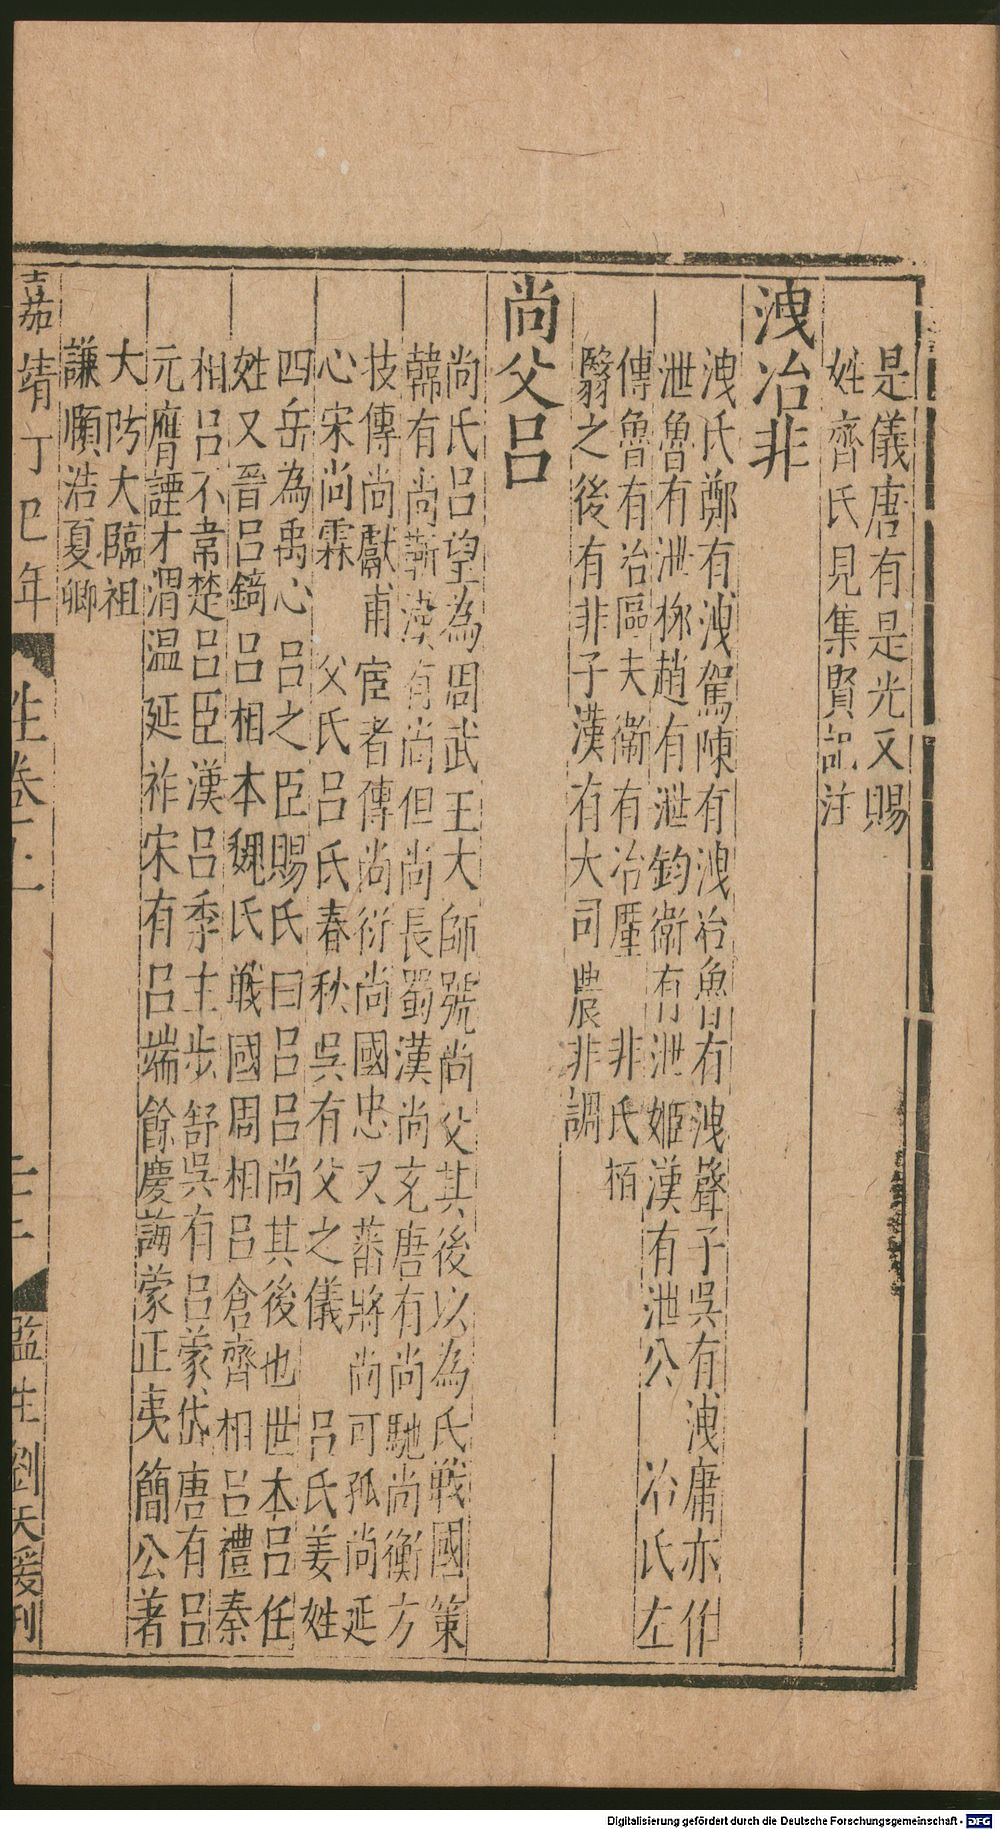 是儀唐有是光又賜
姓齊氏見集賢記注
洩冶非
洩氏鄭有洩駕陳有洩冶魯有洩聲子吳有洩庸亦作
泄魯有泄柳趙有泄鈞衛有泄姬漢有泄公 冶氏左
傳魯有冶區夫衛有冶廑 非氏栢
翳之後有非子漢有大司農非調
尚父吕
尚氏吕望為周武王大師號尚父其後以為氏戰國策
韓有尚靳漢有尚但尚長蜀漢尚充唐有尚馳尚衡方
技傳尚獻甫宦者傳尚衍尚國忠又蕃將尚可孤尚延
心宋尚霖 父氏吕氏春秋吳有父之儀 吕氏姜姓
四岳為禹心吕之臣賜氏曰吕吕尚其後也世本吕任
姓又晉吕錡吕相本魏氏戰國周相吕倉齊相吕禮秦
相吕不韋楚吕臣漢吕季主步舒吳有吕蒙岱唐有吕
元膺諲才渭温延祚宋有吕端餘慶誨蒙正夷簡公著
大防大臨祖
謙頤浩夏卿
嘉靖丁巳年
姓卷
監生劉天愛刊
Digitalisierung gefördert durch die Deutsche Forschungsgemeinschaft - DFG